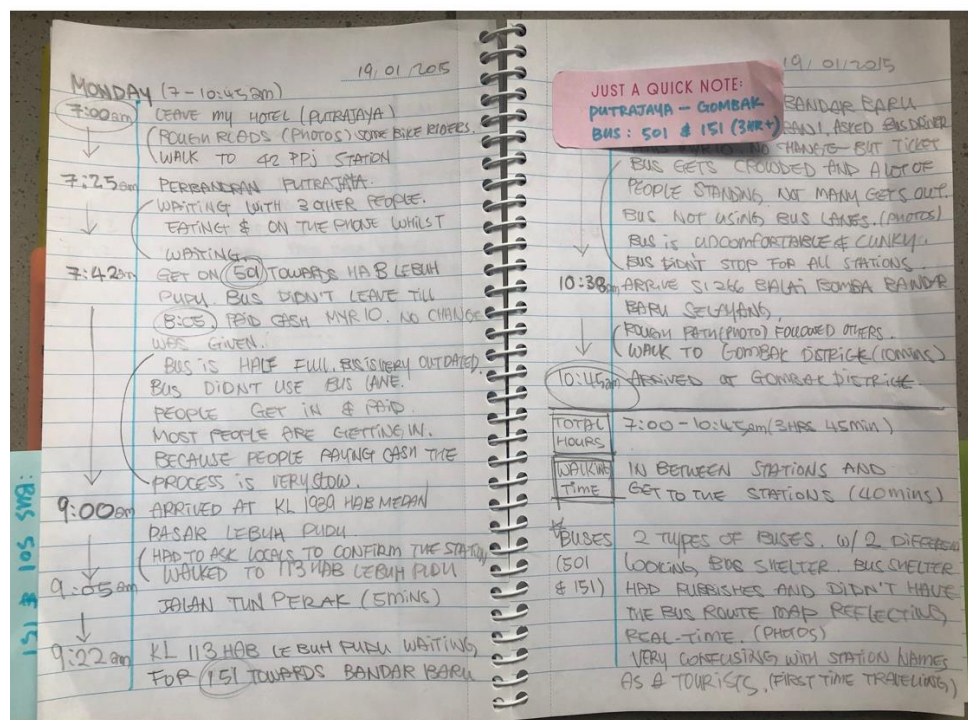 19/01/2015
MONDAY (7-10:45am)
7:00am LEAVE MY HOTEL (PUTRAJAYA)
(ROUGH ROADS (PHOTOS) SOME BIKE RIDERS.
WALK TO 42 PPJ STATION
7:25am PERBANDRAN PUTRAJAYA.
WAITING WITH 3 OTHER PEOPLE.
EATING & ON THE PHONE WHILST
WAITING.
7:42am GET ON 501 TOWARDS HAB LEBUH
PUDU. BUS DIDN'T LEAVE TILL
8:05. PAID CASH MYR10. NO CHANGE
WAS GIVEN.
BUS IS HALF FULL. BUS IS VERY OUTDATED.
BUS DIDN'T USE BUS LANE.
PEOPLE GET IN & PAID.
MOST PEOPLE ARE GETTING IN.
BECAUSE PEOPLE PAYING CASH THE
PROCESS IS VERY SLOW.
9:00am ARRIVED AT KL 1989 HAB MEDAN
PASAR LEBUH PUDU.
(HAD TO ASK LOCALS TO CONFIRM THE STATION
9:05am WALKED TO 113 HAB LEBUH PUDU
JALAN TUN PERAK (5MINS)
9:22am KL 113 HAB LEBUH PUDU WAITING
FOR 151 TOWARDS BANDAR BARU
BUS 501 & 151
19/01/2015
JUST A QUICK NOTE:
PUTRAJAYA - GOMBAK
BUS: 501 & 151 (3HR+)
BANDAR BARU
ASKED BUS DRIVER
NO CHANGE BUT TICKET
BUS GETS CROWDED AND A LOT OF
PEOPLE STANDING, NOT MANY GETS OUT.
BUS NOT USING BUS LANES. (PHOTOS)
BUS IS UNCOMFORTABLE & CLUNKY.
BUS DIDN'T STOP FOR ALL STATIONS.
10:38am ARRIVE SL266 BALAI BOMBA BANDAR
BARU SELAYANG.
(ROUGH PATH (PHOTO) FOLLOWED OTHERS.
WALK TO GOMBAK DISTRICK (10MINS)
10:45am ARRIVED AT GOMBAK DISTRICK.
TOTAL HOURS 7:00 - 10:45am (3HRS 45MIN)
WALKING TIME IN BETWEEN STATIONS AND
GET TO THE STATIONS (40MINS)
*BUSES 2 TYPES OF BUSES. W/ 2 DIFFEREN
(501 LOOKING, BUS SHELTER. BUS SHELTER
& 151) HAD RUBBISHES AND DIDN'T HAVE
THE BUS ROUTE MAP REFLECTING
REAL-TIME. (PHOTOS)
VERY CONFUSING WITH STATION NAMES
AS A TOURISTS. (FIRST TIME TRAVELING)